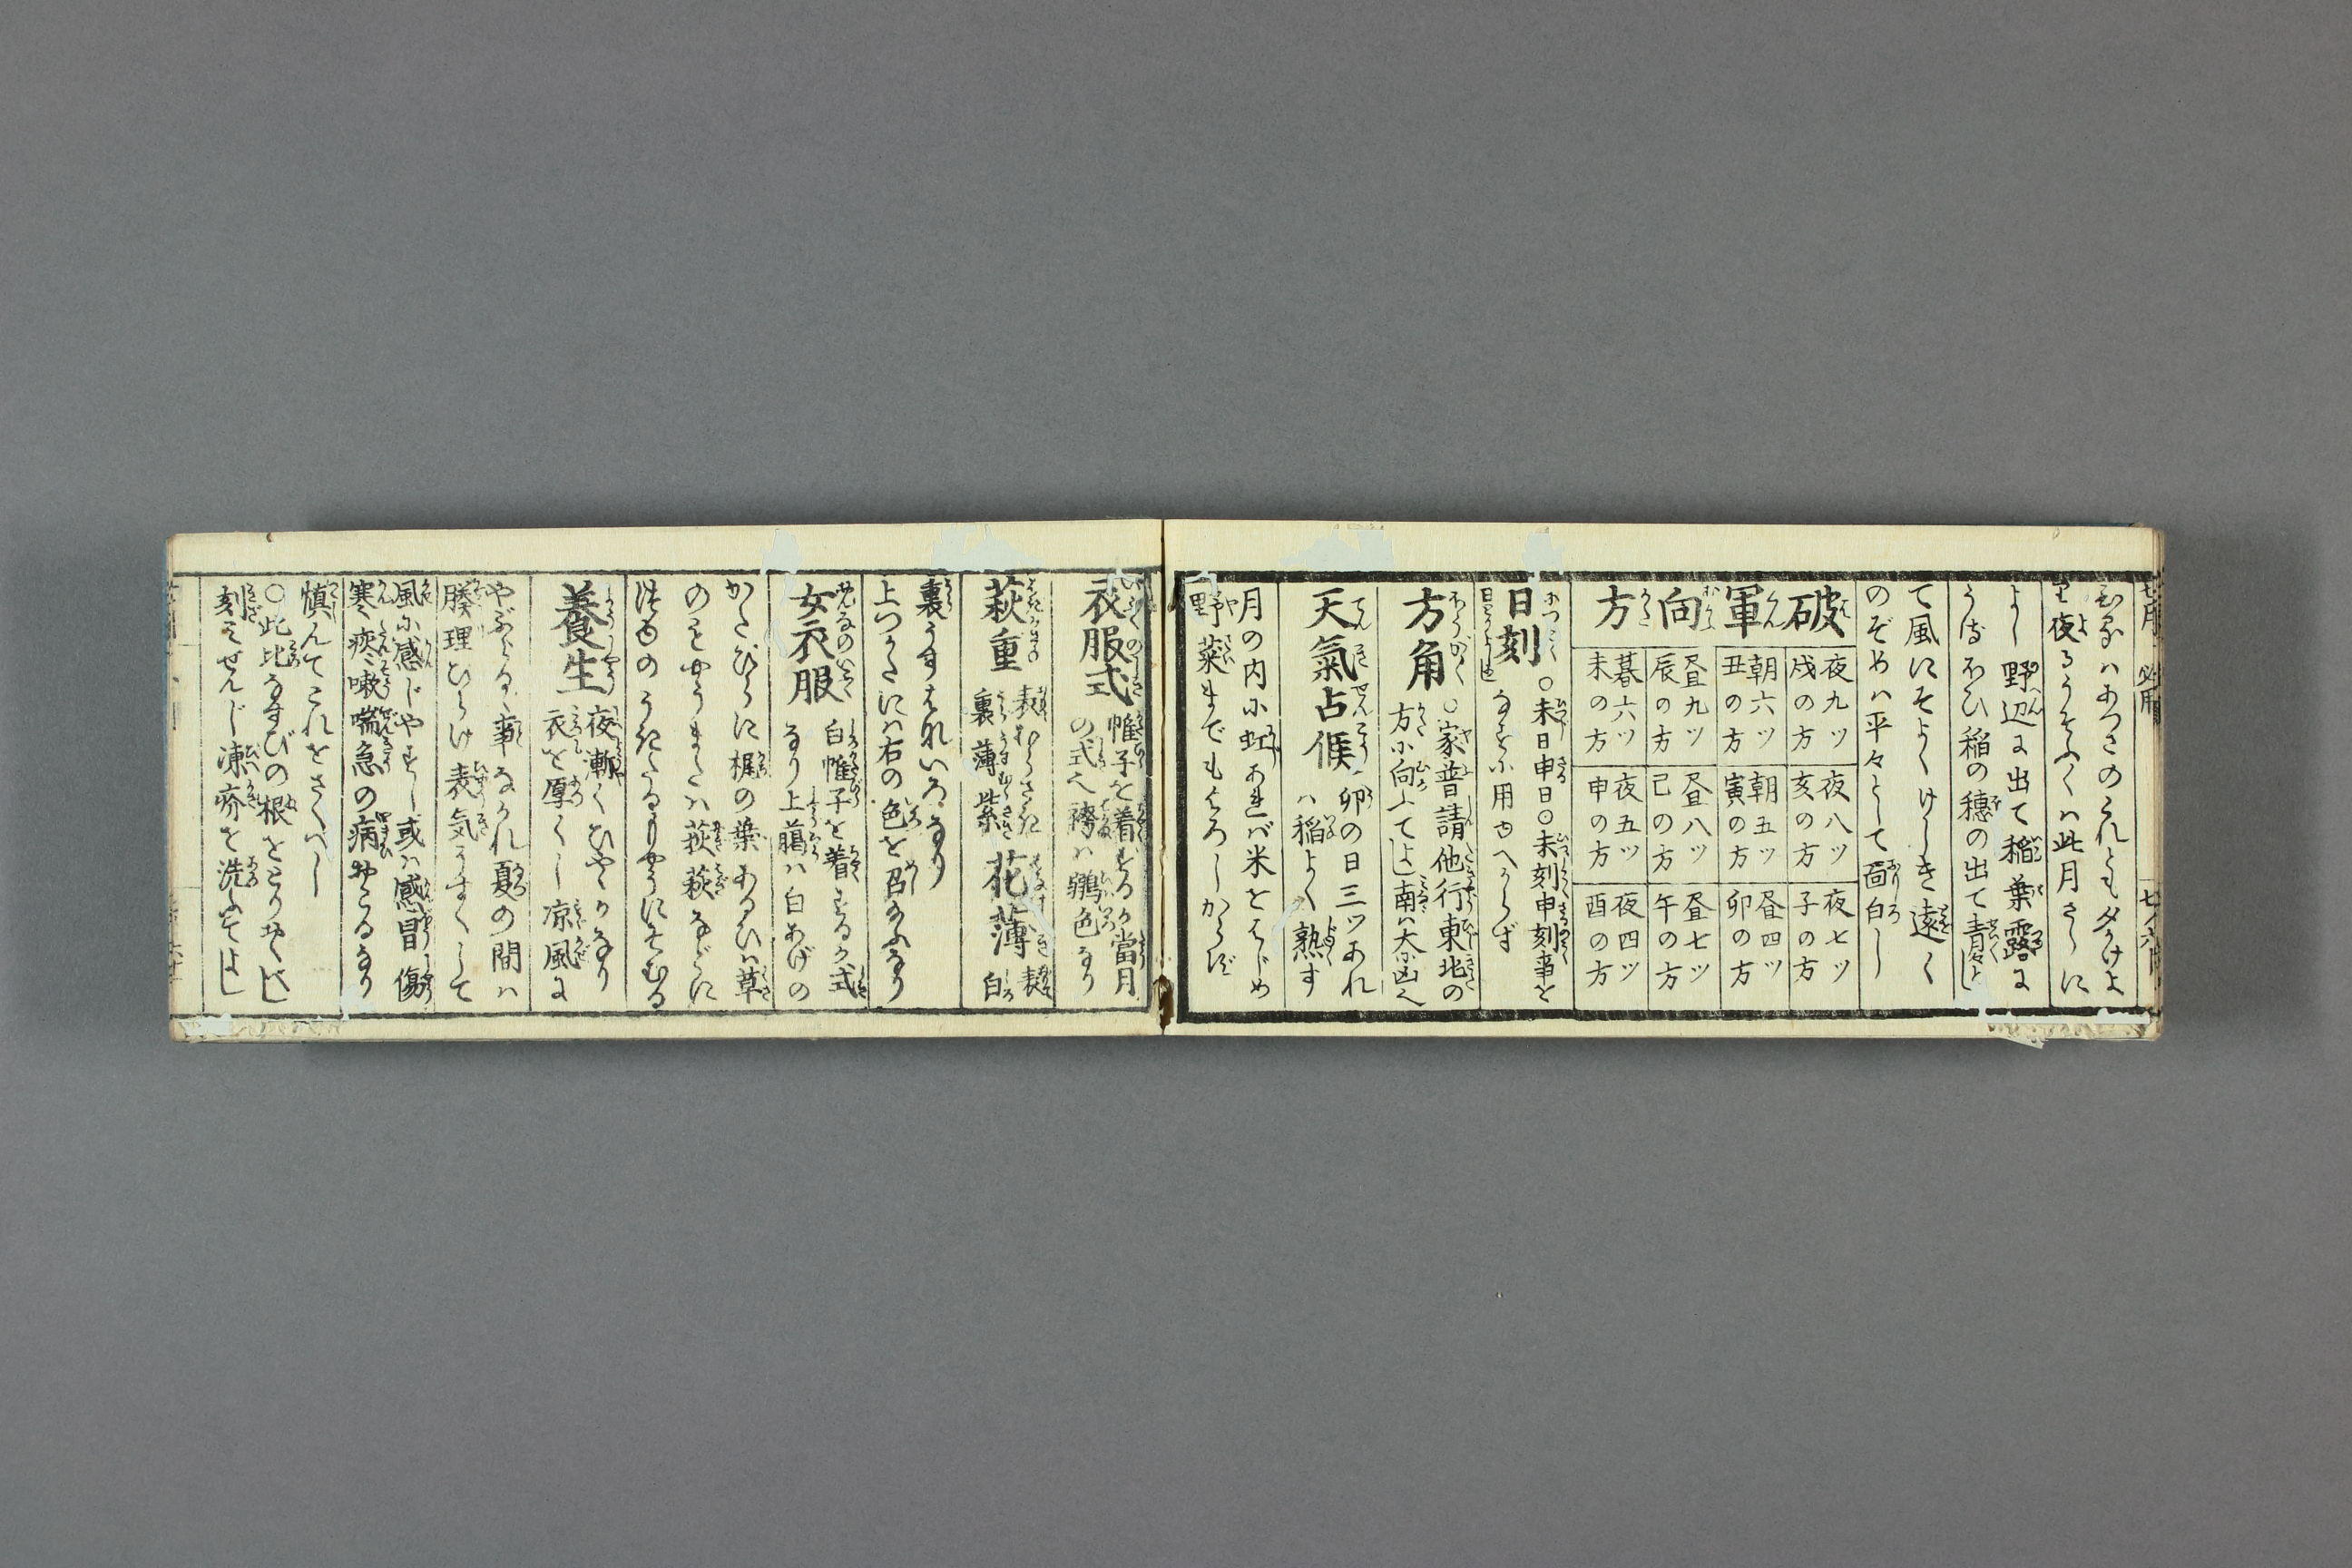 七月 必用
ひるハあつさのこれとも夕かけよ
り夜るうそふくハ此月さらに
よし野辺に出て稲葉露に
うるおひ稲の穂の出て青々とし
て風にそよくけしき遠く
のぞめハ平々として面白し
破軍向方
夜九ツ 戌の方
夜八ツ 亥の方
夜七ツ 子の方
朝六ツ 丑の方
朝五ツ 寅の方
昼四ツ 卯の方
昼九ツ 辰の方
昼八ツ 巳の方
昼七ツ 午の方
暮六ツ 未の方
夜五ツ 申の方
夜四ツ 酉の方
日刻
○未日申日○未刻申刻事を
なすに用ゆへからず
方角
○家普請他行東北の
方に向ふてよし南ハ大凶也
天氣占候
卯の日三ツあれ
ハ稲よく熟す
月の内に虹あれバ米をはじめ
野菜までもよろしからず
衣服式
帷子を着するか當月
の式也袴ハ鶸色なり
萩重
表むらさき
裏薄紫
花薄
表白
裏うすはれいろなり
上つかたにハ右の色を召なふなり
女衣服
白帷子を着するか式
なり上臈ハ白あげの
かたびらに梶の葉あるひハ草
のそやうまたハ荻萩などに
養生
夜漸くひやゝかなり
衣を厚くし凉風に
やぶらるゝ事なかれ夏の間ハ
腠理ひらけ表気うすくして
風に感じやすし或ハ感冒傷
寒痰嗽喘急の病おこるなり
慎んてこれをさくへし
○此比なすびの根をとりおくべし
刻みせんじ凍瘡を洗ふてよし